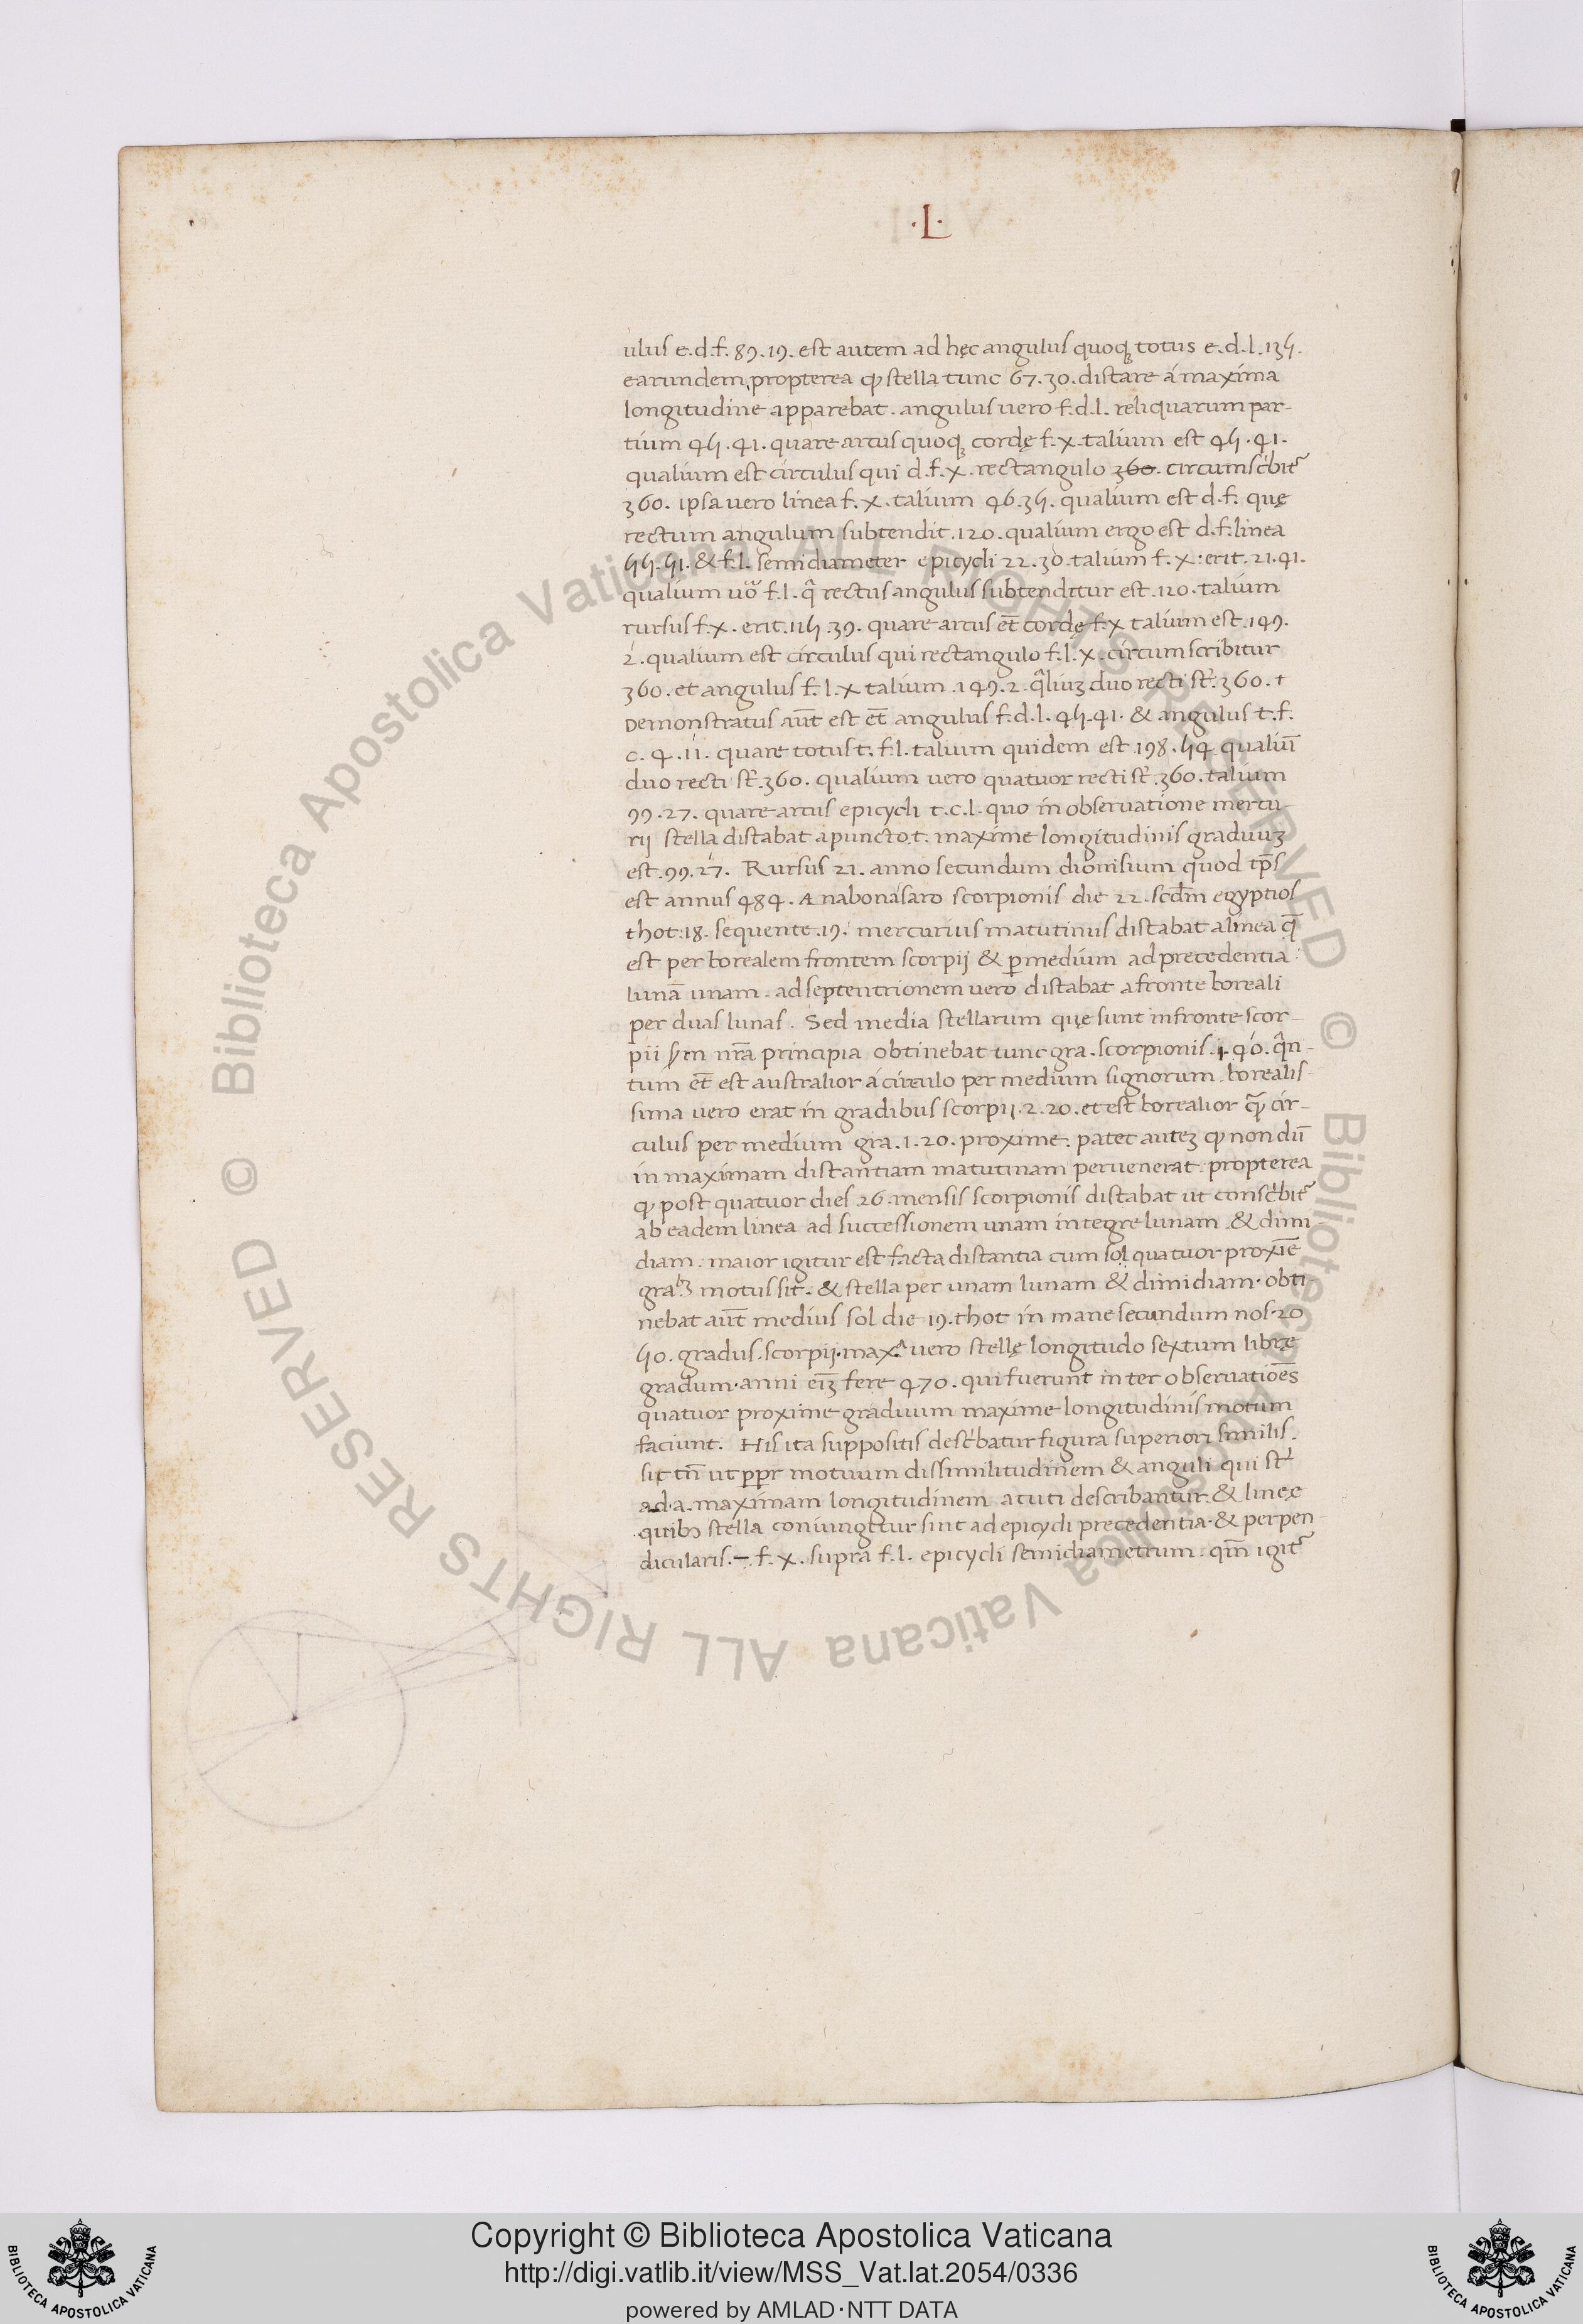 ·L·
ulus e.d.f. 89.19. est autem ad hęc angulus quoqꝫ totus e.d.l.135.
earundem, propterea qꝫ stella tunc 67.30. distare á maxima
longitudine apparebat. angulus uero f.d.l. reliquarum par-
tium 45.41. quare arcus quoqꝫ cordę f.x. talium est 45.41.
qualium est circulus qui d.f.x. rectangulo 360. circumscͥbit᷑
360. ipsa uero linea f.x. talium 46.35. qualium est d.f. quę
rectum angulum subtendit .120. qualium ergo est d.f. linea
55.51. & f.l. semidiameter epicycli 22.30. talium f.x: erit. 21.41.
qualium uo᷑ f.l. q̂ rectus angulus subtenditur est .120. talium
rursus f.x. erit. 115.39. quare arcus et̅ cordę f.x talium est .149.
2. qualium est circulus qui rectangulo f.l.x. circumscribitur
360. et angulus f.l.x talium .149.2. q̂liuꝫ duo recti st᷑. 360. t
Demonstratus aut̅ est et̅ angulus f.d.l. 45.41. & angulus t.f.
c. 4.11. quare totus t.f.l. talium quidem est .198.54. qualiu̅
duo recti st᷑. 360. qualium vero quatuor recti st᷑. 360. talium
99.27. quare arcus epicycli t.c.l. quo in obseruatione mercu-
rij stella distabat a puncto .t. maxime longitudinis graduuꝫ
est .99.27. Rursus 21. anno secundum dionisium quod tp̅s
est annus 484. A nabonasaro scorpionis die 22. scd̅m egyptios
thot .18. sequente .19. mercurius matutinus distabat a linea q̅
est per borealem frontem scorpij & ꝑ medium ad precedentia
luna̅ unam. ad septentrionem vero distabat a fronte boreali
per duas lunas. Sed media stellarum quę sunt in fronte scor-
pii ẜm nr̅a principia obtinebat tunc gra. scorpionis .1.40. q̂n-
tum et̅ est australior á circulo per medium signorum. borealis-
sima vero erat in gradibus scorpij. 2.20. et est borealior q̃ꝫ cir-
culus per medium gra. 1.20. proxime. patet auteꝫ qꝫ non du̅
in maximam distantiam matutinam peruenerat. propterea
qꝫ post quatuor dies .26. mensis scorpionis distabat ut conscͥbit᷑
ab eadem linea ad successionem unam integre lunam & dimi-
diam. maior igitur est facta distantia cum sol quatuor proxi̅e
grabꝫ motus sit. & stella per unam lunam & dimidiam. obti-
nebat aut̅ medius sol die 19. thot in mane secundum nos. 20
50. gradus. scorpij. maxᵃ. uero stellę longitudo sextum librę
gradum. anni eiꝫ fere 470. qui fuerunt inter obseruatio̅es
quatuor proxime graduum maxime longitudinis motum
faciunt. His ita suppositis descͥbatur figura superiori similis.
sit tn̅ ut ꝓpr motuum dissimilitudinem & anguli qui st᷑
ad .a. maximam longitudinem acuti describantur. & lineę
quibꝰ stella coniungitur sint ad epicycli precedentia. & perpen-
dicularis. – f.x. supra f.l. epicycli semidiametrum. qm̅ igit᷑
Copyright © Biblioteca Apostolica Vaticana
http://digi.vatlib.it/view/MSS_Vat.lat.2054/0336
powered by AMLAD·NTT DATA
BIBLIOTECA APOSTOLICA VATICANA
BIBLIOTECA APOSTOLICA VATICANA
© Biblioteca Apostolica Vaticana ALL RIGHTS RESERVED
© Biblioteca Apostolica Vaticana ALL RIGHTS RESERVED